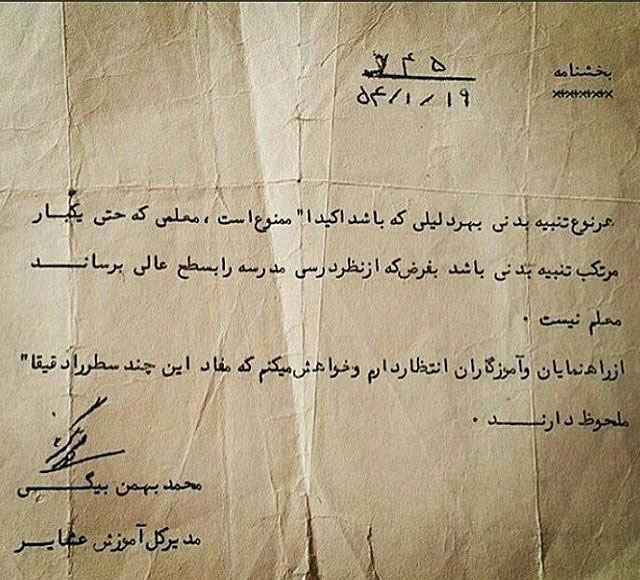 بخشنامه
۵۴/۱/۱۹
هرنوع تنبیه بدنی بهردلیلی که باشد اکیدا" ممنوع است ، معلمی که حتی یکبار
مرتکب تنبیه بدنی باشد بفرض که ازنظردرسی مدرسه رابسطح عالی برساند
معلم نیست .
ازراهنمایان وآموزگاران انتظاردارم وخواهش میکنم که مفاد این چند سطررادقیقا"
ملحوظ دارند .
محمد بهمن بیگی
مدیرکل آموزش عشایر